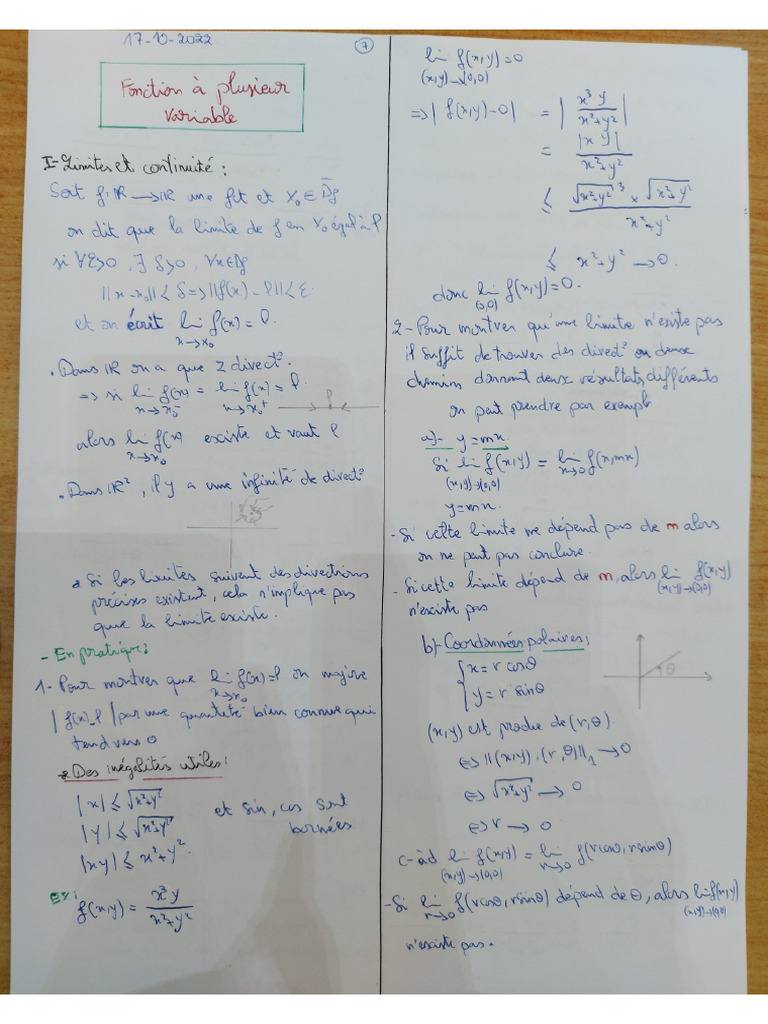 17-10-2022
7
Fonction à plusieur
variable
I- Limites et continuité :
Soit f: IR → IR une fct et X₀ ∈ D̄f
on dit que la limite de f en X₀ égal à l
si ∀ε>0, ∃ δ>0, ∀x∈Df
||x-x₀|| < δ ⇒ ||f(x) - l|| < ε
et on écrit lim f(x) = l.
x→x₀
. Dans IR on a que 2 direct°.
⇒ si lim f(x) = lim f(x) = l.
x→x₀⁻ x→x₀⁺
l
alors lim f(x) existe et vaut l
x→x₀
. Dans IR², il y a une infinité de direct°
Si les limites suivent des directions
précises existent, cela n'implique pas
que la limite existe.
- En pratique:
1- Pour montrer que lim f(x)=l on majore
x→x₀
|f(x)-l| par une quantité bien connue qui
tend vers 0
Des inégalités utiles:
|x| ≤ √x²+y²
|y| ≤ √x²+y²
|xy| ≤ x²+y².
et sin, cos sont
bornées
Ex:
f(x,y) = x³y / x²+y²
lim f(x,y) = 0
(x,y)→(0,0)
⇒ |f(x,y)-0| = | x³y / x²+y² |
= |xy| / x²+y²
≤ √x²+y²³ × √x²+y² / x²+y²
≤ x²+y² → 0.
donc lim f(x,y) = 0.
(0,0)
2- Pour montrer qu'une limite n'existe pas
il suffit de trouver des direct° ou deux
chemins donnant deux résultats différents
on peut prendre par exempl
a)- y = mx
Si lim f(x,y) = lim f(x,mx)
(x,y)→(0,0) x→0
y=mx.
- Si cette limite ne dépend pas de m alors
on ne peut pas conclure.
- Si cette limite dépend de m, alors lim f(x,y)
(x,y)→(0,0)
n'existe pas
b)- Coordonnées polaires:
{ x = r cosθ
{ y = r sinθ
θ
(x,y) est proche de (r,θ)
⇔ ||(x,y),(r,θ)||₁ → 0
⇔ √x²+y² → 0
⇔ r → 0
c-àd lim f(x,y) = lim f(rcosθ, rsinθ)
(x,y)→(0,0) r→0
- Si lim f(rcosθ, rsinθ) dépend de θ, alors lim f(x,y)
r→0 (x,y)→(0,0)
n'existe pas.